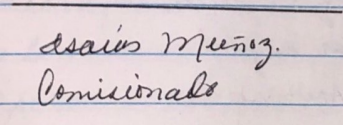 Isaías Muñoz.
Comisionado